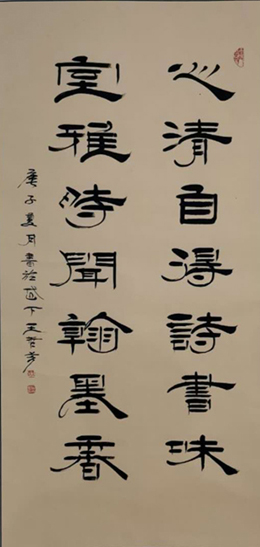 心清自得詩書味
室雅時聞翰墨香
庚子夏月書於岱下王哲孝